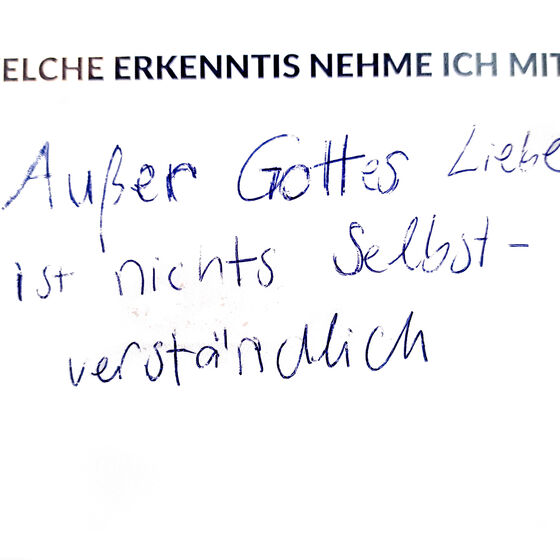 ELCHE ERKENNTIS NEHME ICH MIT
Außer Gottes Liebe
ist nichts Selbst-
verständlich